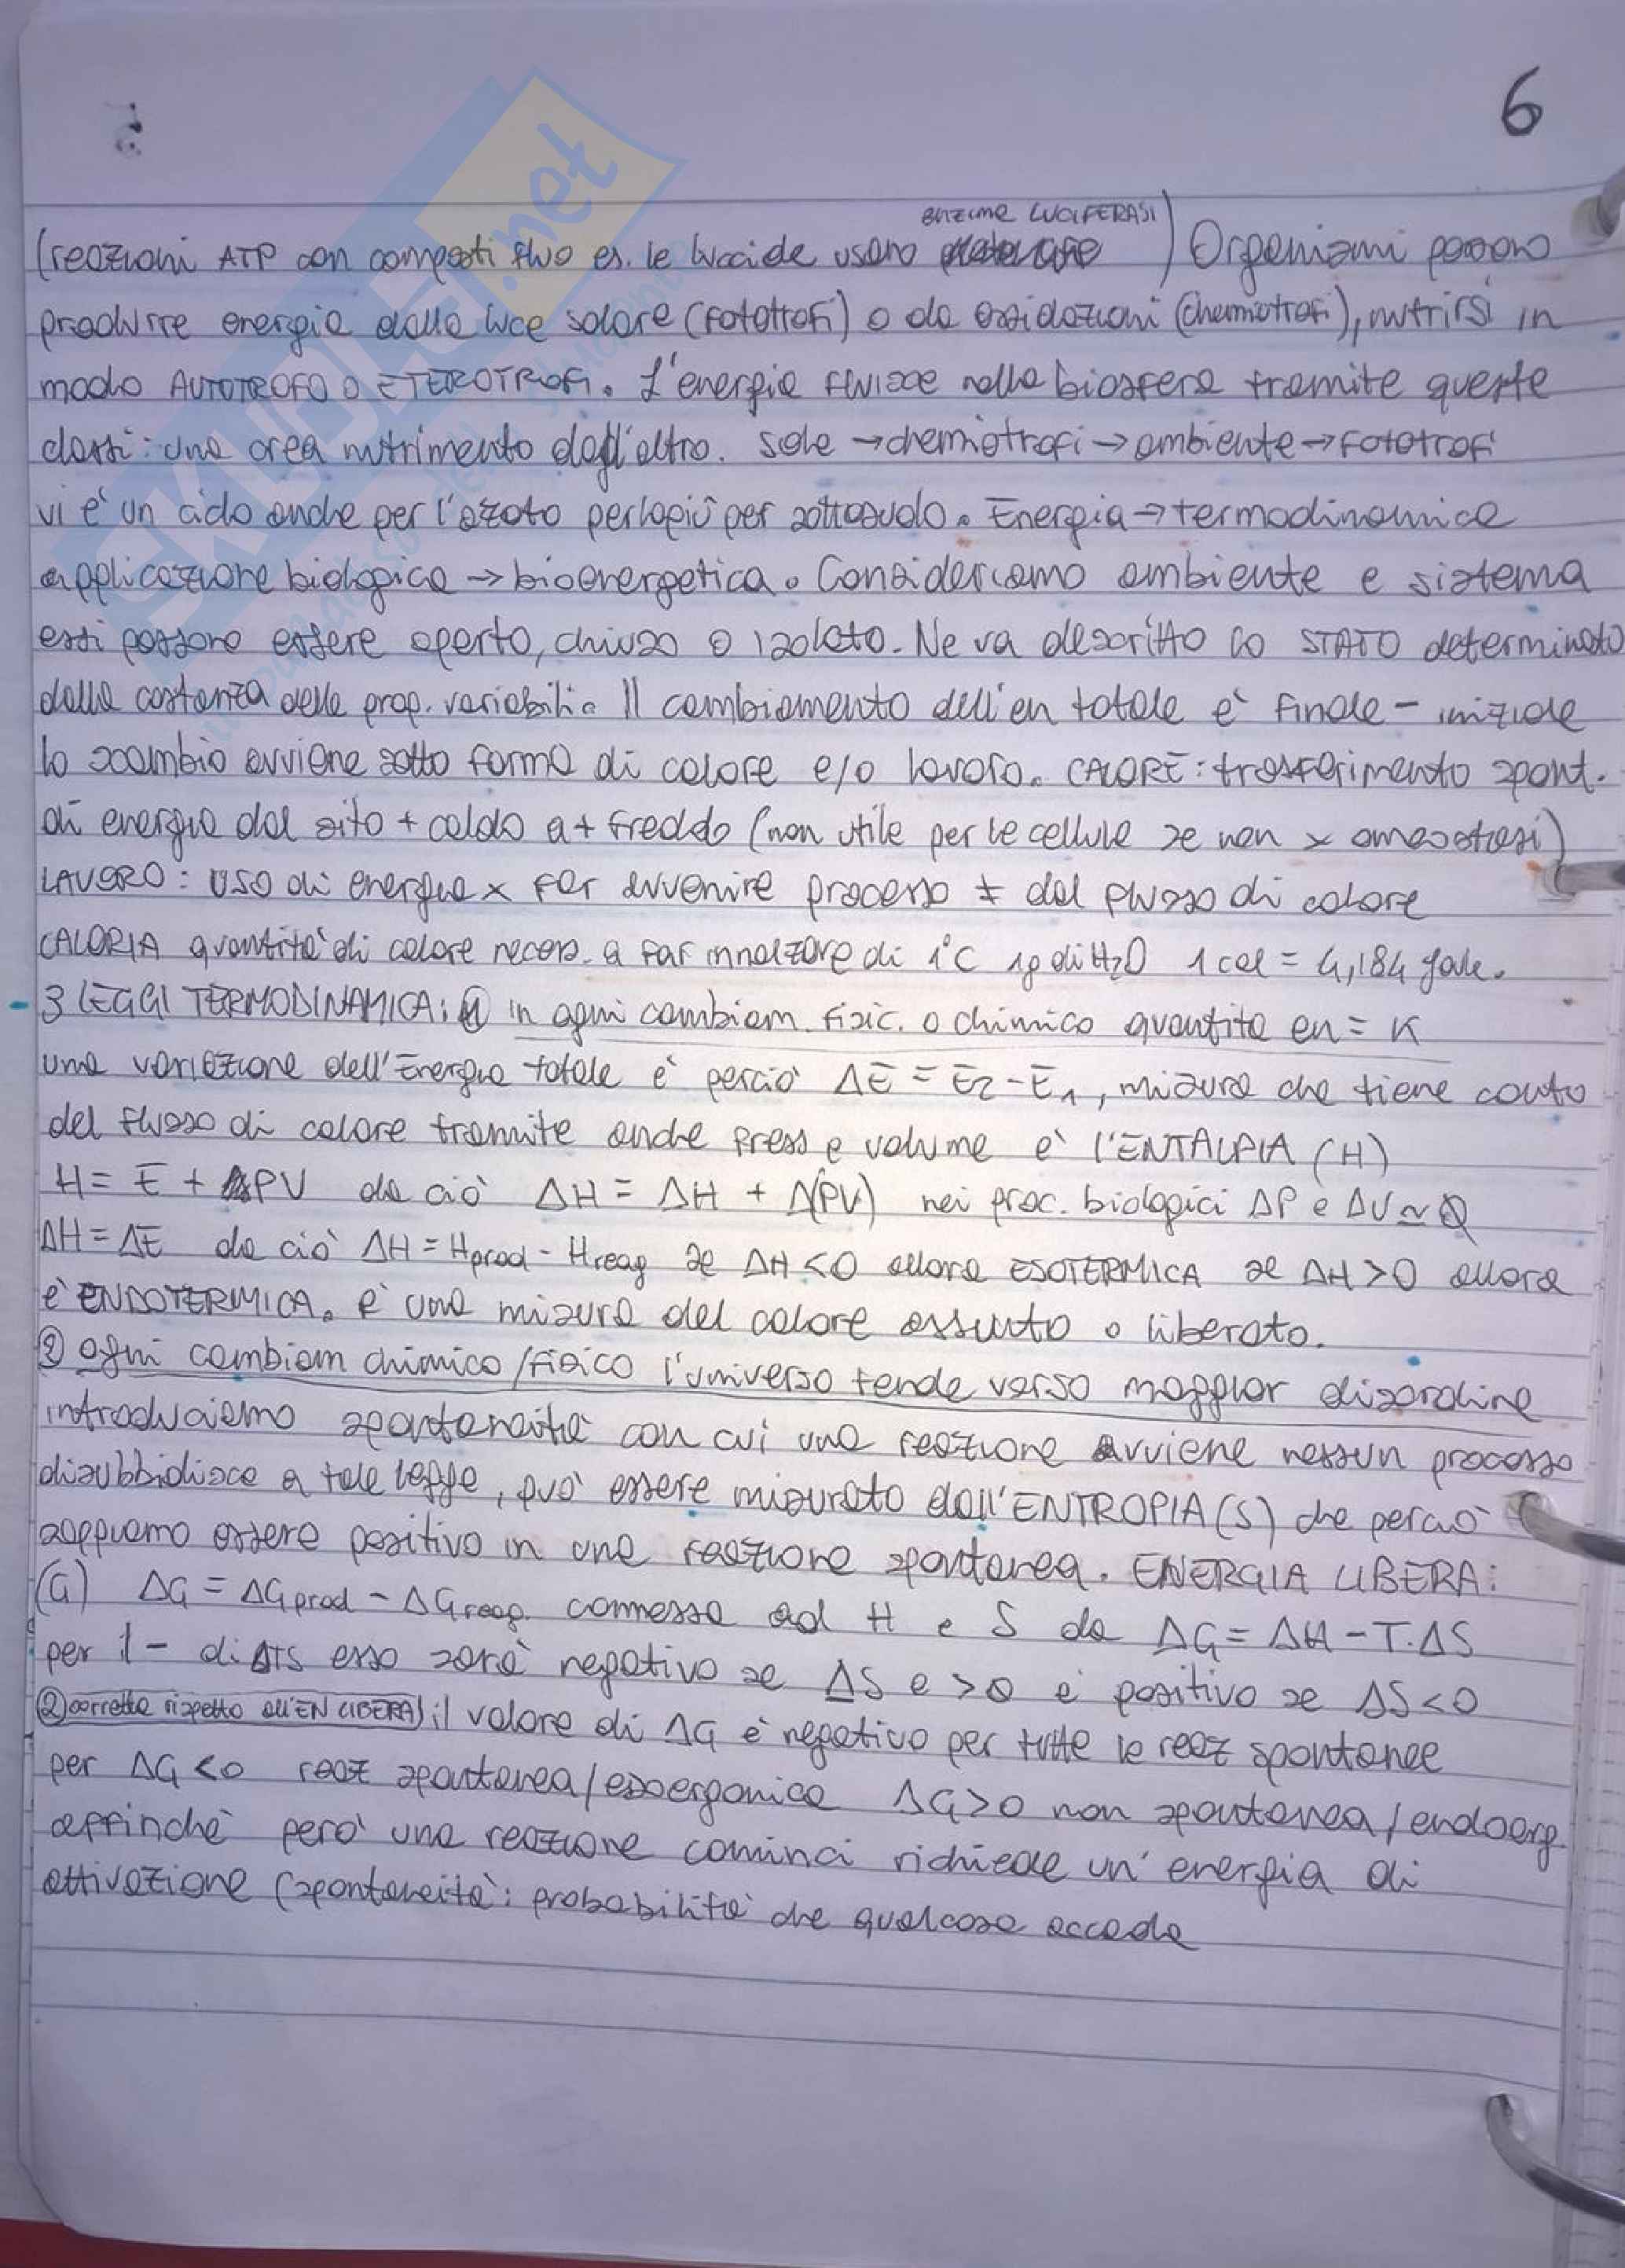 6
enzima LUCIFERASI
(reazioni ATP con composti fluo es. le lucciole usano ) Organismi possono
produrre energia dalla luce solare (fototrofi) o da ossidazioni (chemiotrofi), nutrirsi in
modo AUTOTROFO O ETEROTROFI. L'energia fluisce nella biosfera tramite queste
classi: una crea nutrimento dagl'altro. sole → chemiotrofi → ambiente → fototrofi
vi è un ciclo anche per l'azoto perlopiù per sottosuolo. Energia → termodinamica
applicazione biologica → bioenergetica. Consideriamo ambiente e sistema
essi possono essere aperto, chiuso o isolato. Ne va descritto lo STATO determinato
dalla costanza delle prop. variabili. Il cambiamento dell'en totale è finale - iniziale
lo scambio avviene sotto forma di calore e/o lavoro. CALORE: trasferimento spont.
di energia dal sito + caldo a + freddo (non utile per le cellule se non x omeostasi)
LAVORO: USO di energia x far avvenire processo ≠ dal flusso di calore
CALORIA quantità di calore necess. a far innalzare di 1°C 1g di H2O 1 cal = 4,184 Joule.
- 3 LEGGI TERMODINAMICA: ① in ogni cambiam. fisic. o chimico quantità en = K
una variazione dell'Energia totale è perciò ΔE = E2 - E1, misura che tiene conto
del flusso di calore tramite anche press e volume è l'ENTALPIA (H)
H = E + PV da ciò ΔH = ΔH + Δ(PV) nei proc. biologici ΔP e ΔV ≃ 0
ΔH = ΔE da ciò ΔH = Hprod - Hreag se ΔH < 0 allora ESOTERMICA se ΔH > 0 allora
è ENDOTERMICA. è una misura del calore assunto o liberato.
② ogni cambiam chimico/fisico l'universo tende verso maggior disordine
introduciamo spontaneità con cui una reazione avviene nessun processo
disubbidisce a tale legge, può essere misurato dall'ENTROPIA (S) che perciò
sappiamo essere positivo in una reazione spontanea. ENERGIA LIBERA:
(G) ΔG = ΔGprod - ΔGreag. connessa ad H e S da ΔG = ΔH - T.ΔS
per il - di ΔTS esso sarà negativo se ΔS e > 0 e positivo se ΔS < 0
② corretta rispetto all'EN LIBERA) il valore di ΔG è negativo per tutte le reaz spontanee
per ΔG < 0 reaz spontanea/esoergonica ΔG > 0 non spontanea/endoerg.
affinché però una reazione cominci richiede un'energia di
attivazione (spontaneità: probabilità che qualcosa accada
SKUOLA.net